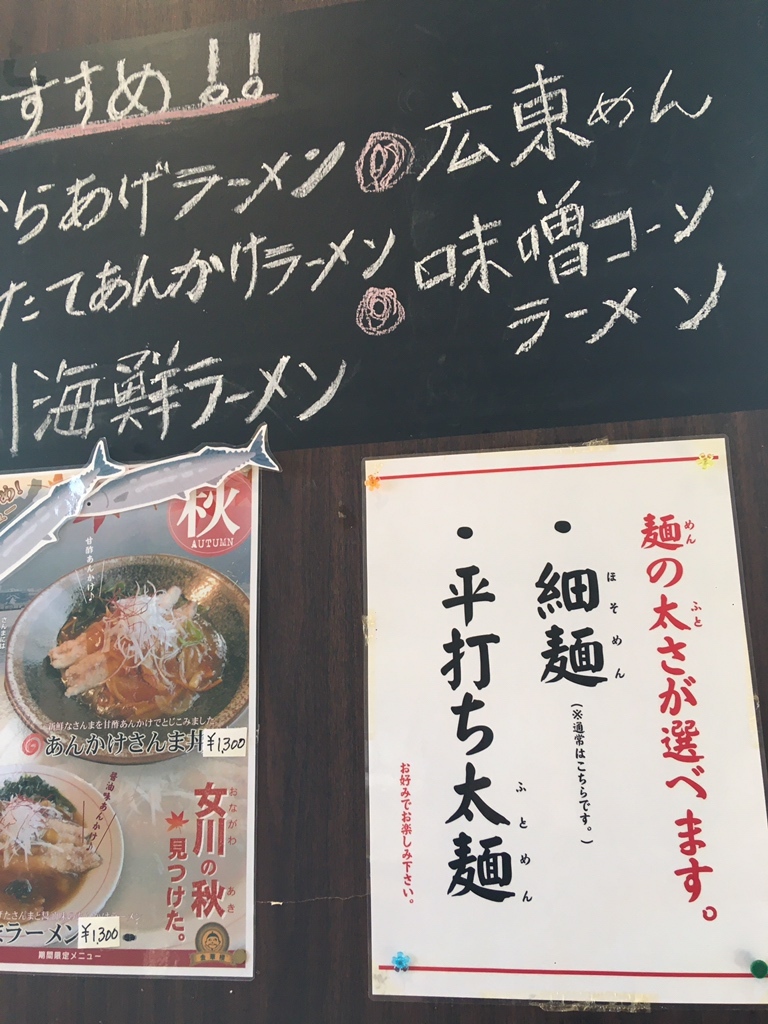 すすめ!!
らあげラーメン
たてあんかけラーメン
海鮮ラーメン
広東めん
味噌コーン
ラーメン
秋
AUTUMN
甘酢あんかけ♪
新鮮なさんまを甘酢あんかけでとじこみました
あんかけさんま丼
¥1,300
醤油味あんかけ♪
ラーメン
¥1,300
女川の秋
おながわ
あき
見つけた。
期間限定メニュー
金華楼
麺の太さが選べます。
めん
ふと
・細麺
ほそめん
(※通常はこちらです。)
・平打ち太麺
ふとめん
お好みでお楽しみ下さい。